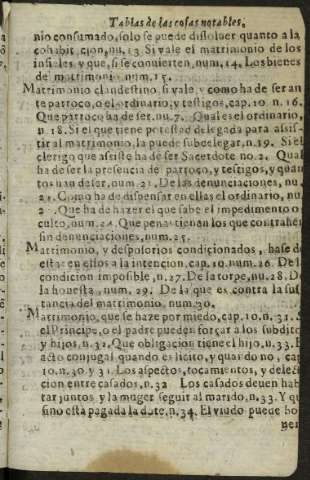 Tablas de las cosas notables,
nio consumado, solo se puede dissoluer quanto a la
cohabitacion, nu, 13. Si vale el matrimonio de los
infieles, y que, si se conuierten, num, 14, Los bienes
de matrimonio num, 15.
Matrimonio clandestino, si vale, y como ha de ser an
te parroco, o el ordinario, y testigos, cap. 10 n. 16.
Que parroco ha de ser, nu. 7. Qual es el ordinario,
n. 18. Si el que tiene potestad delegada para assis-
tir al matrimonio, la puede subdelegar, n. 19. Si el
clerigo que assiste ha de ser Sacerdote no. 2. Qual
ha de ser la presencia de parroco, y testigos, y quan
tos han de ser, num. 21. De las denunciaciones, nu.
21. Como ha de dispensar en ellas el ordinario, nu,
2. Que ha de hazer el que sabe el impedimento o
culto, num. 24. Que penas tienen los que contrahen
sin denunciaciones, num. 25.
Matrimonio, y desposorios condicionados, hase de
estar en ellos a la intencion, cap. 10. num. 26. De la
condicion imposible, n. 27. De la torpe, nu. 28. De
la honesta, num. 29. De la que es contra la sus
tancia del matrimonio, num. 30.
Matrimonio, que se haze por miedo, cap. 10, n. 31. S
el Principe, o el padre pueden forçar a los subdito
y hijos, n. 32, Que obligacion tiene el hijo, n. 33. E
acto conjugal quando es licito, y quando no, cap
10. n. 30 y 31. Los aspectos, tocamientos, y delect
cion entre casados, n. 32 Los casados deuen hab
tar juntos y la muger seguir al marido, n. 33. Y qu
sino està pagada la dote, n, 34. El viudo puede bo
uer